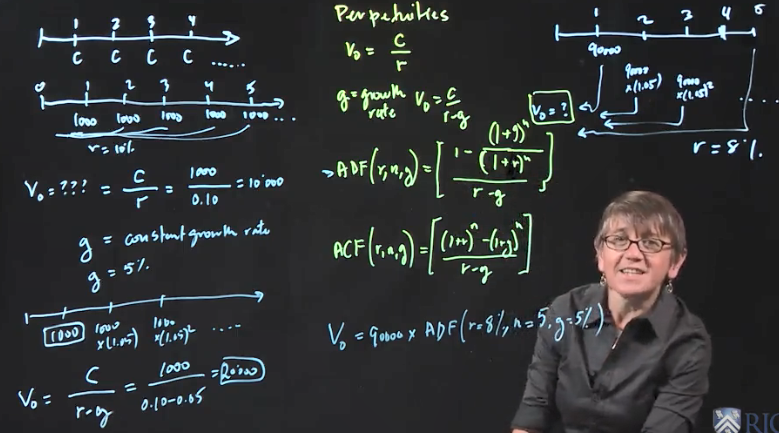 1 2 3 4
C C C C ......
0 1 2 3 4 5
1000 1000 1000 1000 1000 ...
r = 10%
V₀ = ??? = C/r = 1000/0.10 = 10'000
g = constant growth rate
g = 5%
1000 1000 ×(1.05) 1000 ×(1.05)² ....
V₀ = C/(r-g) = 1000/(0.10-0.05) = 20'000
Perpetuities
V₀ = C/r
g = growth rate V₀ = C/(r-g)
ADF(r,n,g) = [(1 - (1+g)ⁿ/(1+r)ⁿ)/(r-g)]
ACF(r,n,g) = [((1+r)ⁿ - (1+g)ⁿ)/(r-g)]
V₀ = 90000 × ADF(r=8%, n=5, g=5%)
1 2 3 4 5
90000
9000 ×(1.05) 9000 ×(1.05)² ....
V₀ = ?
r = 8%